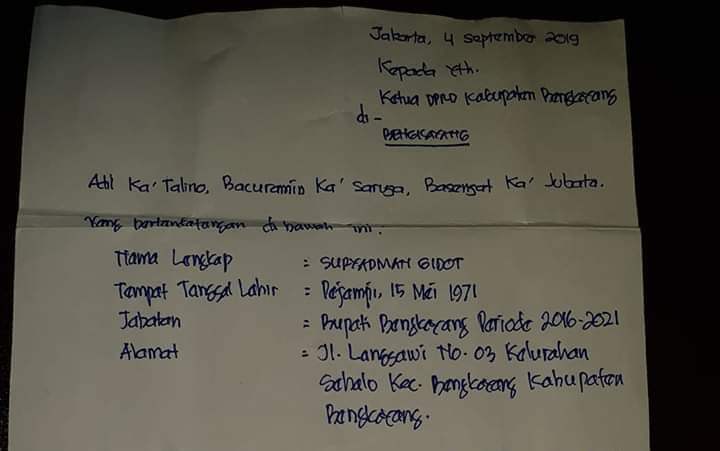 Jakarta, 4 September 2019
Kepada Yth.
Ketua DPRD Kabupaten Bengkayang
di -
BENGKAYANG
Adil Ka' Talino, Bacuramin Ka' Saruga, Basengat Ka' Jubata.
Yang bertandatangan di bawah ini:
Nama Lengkap : SURYADMAN GIDOT
Tempat Tanggal Lahir : Pejampi, 15 Mei 1971
Jabatan : Bupati Bengkayang Periode 2016-2021
Alamat : Jl. Langgawi No. 03 Kelurahan
Sebalo Kec. Bengkayang Kabupaten
Bengkayang.